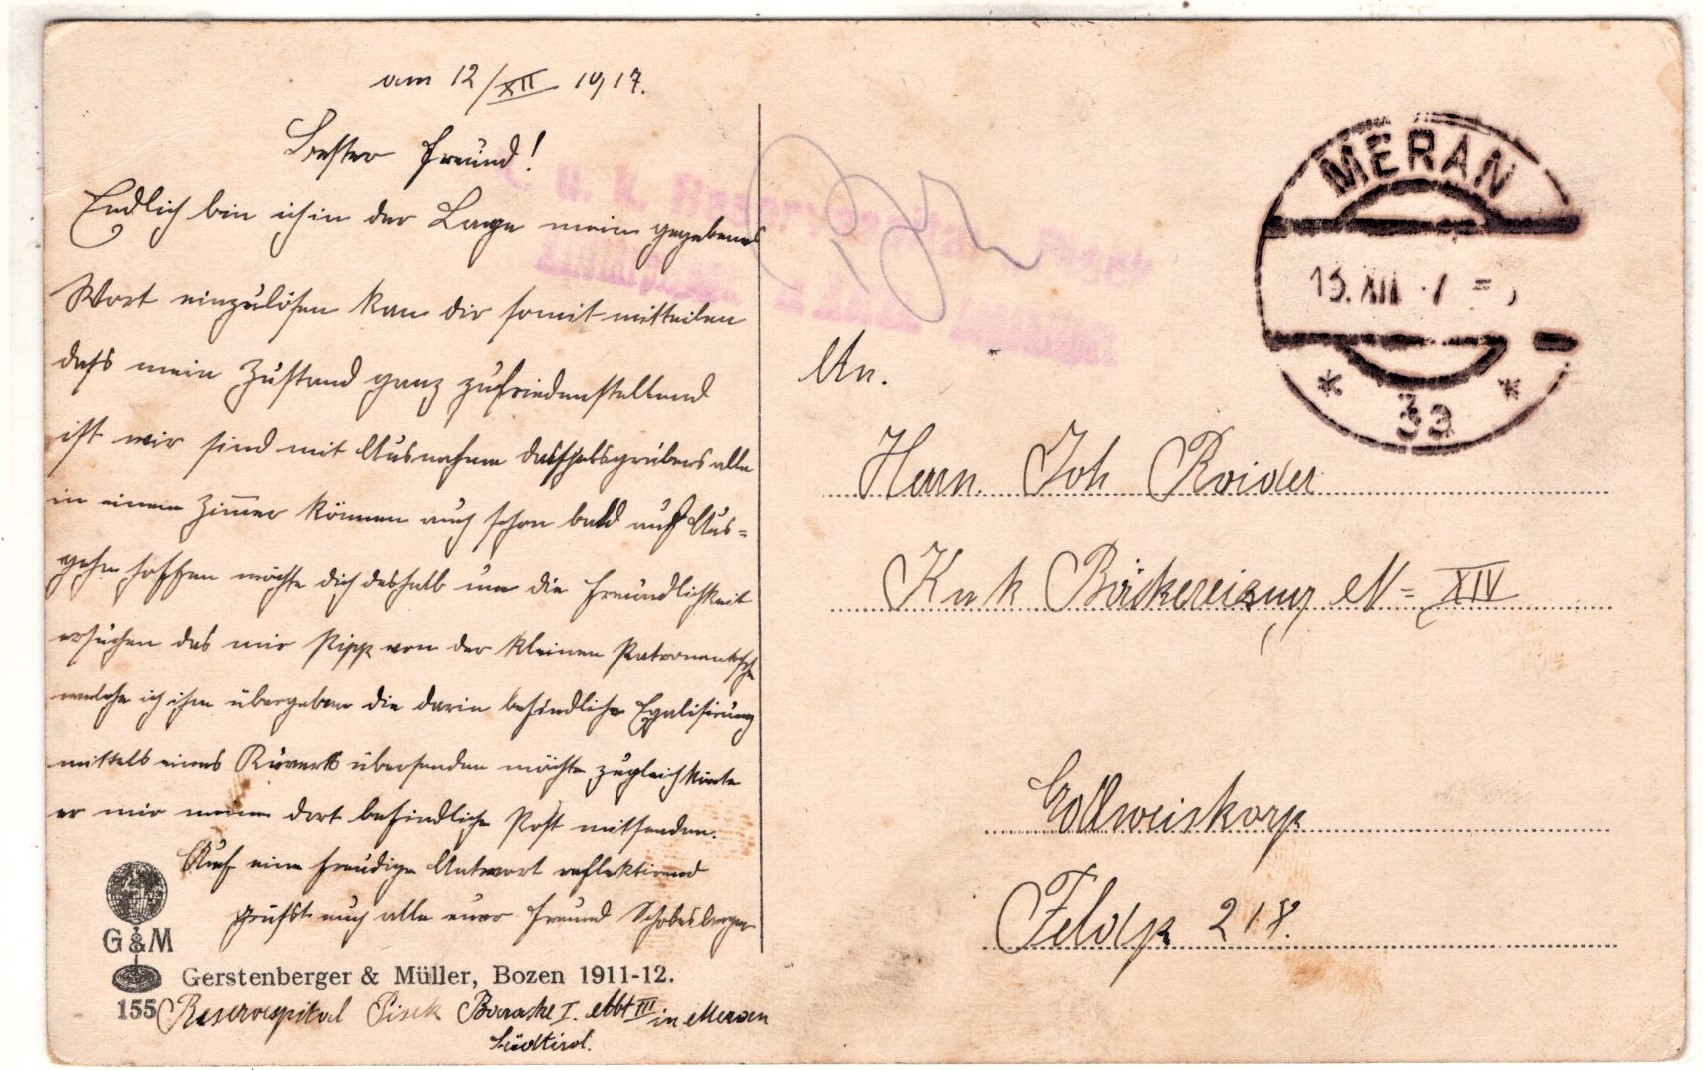 am 12/XII 1917.
Bester Freund!
Endlich bin ich in der Lage mein gegebenes
Wort einzulösen kan dir somit mitteilen
dass mein Zustand ganz zufriedenstellend
ist wir sind mit Ausnahme alle
in einem Zimmer können auch schon bald auf Aus=
gehn hoffen möchte dich deshalb um die Freundlichkeit
ersuchen das mir von der kleinen
welche ich ihm übergeben die darin befindliche Egalisirung
mittels eines Kuverts übersenden möchte zugleich könte
er mir meine dort befindliche Post mitsenden.
Auf eine freudige Antwort reflektirend
grüsst euch alle euer Freund
G&M
Gerstenberger & Müller, Bozen 1911-12.
155
Reservespital Pisek Baracke I. Abt III in Meran
Südtirol.
MERAN
13. XII 7
3a
An.
Herrn. Joh Roider
K u k Bäckereizug N= XIV
Feldp 218.